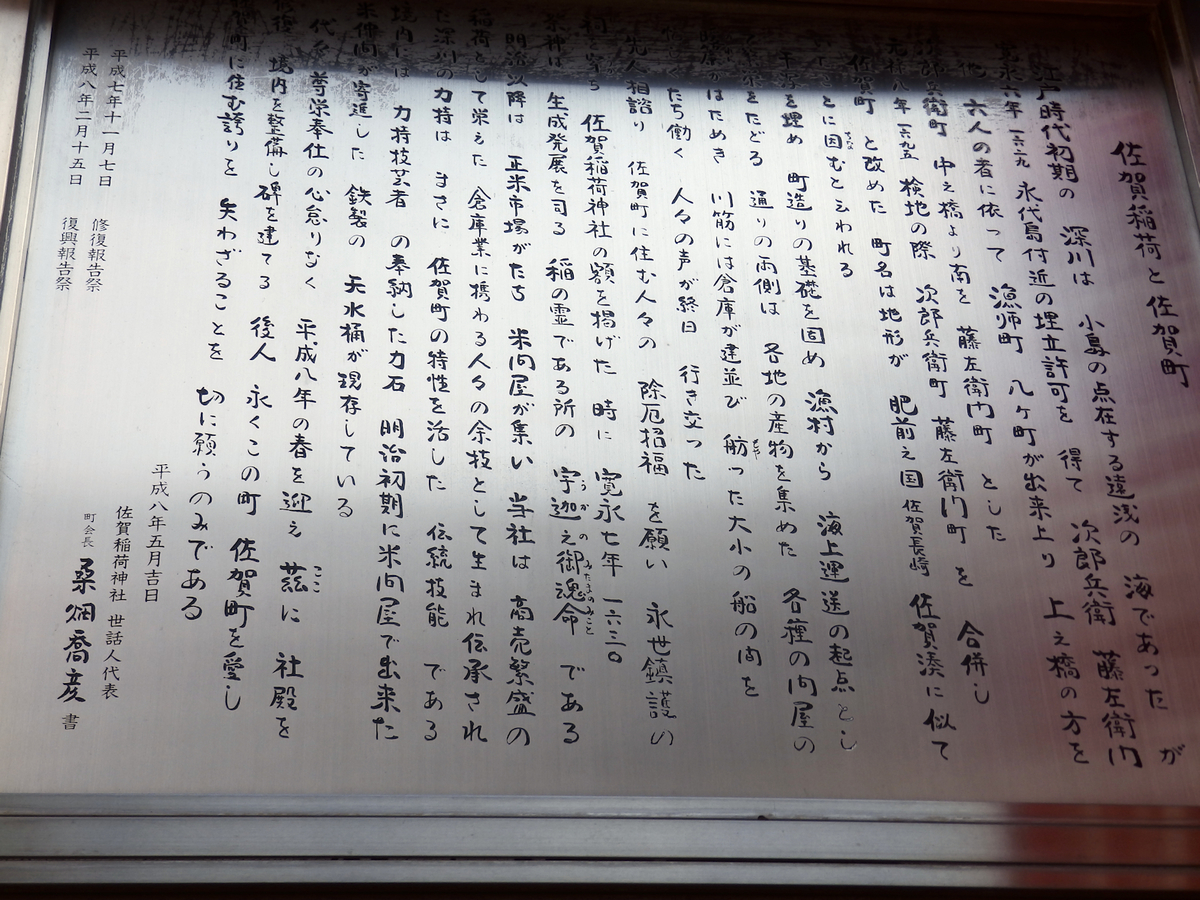 佐賀稲荷と佐賀町
江戸時代初期の 深川は 小島の点在する遠浅の 海であった が
寛永六年 一六二九 永代島付近の埋立許可を 得て 次郎兵衛 藤左衛门
六人の者に依って 漁师町 八ヶ町が出来上り 上之橋の方を
次郎兵衛町 中之橋より南を 藤左衛门町 とした
元禄八年 一六九五 検地の際 次郎兵衛町 藤左衛门町 を 合併し
佐賀町 と改めた 町名は地形が 肥前之国 佐賀長崎 佐賀湊に似て
ことに因むと云われる
を埋め 町造りの基礎を固め 漁村から 海上運送の起点とし
をたどる 通りの両側は 各地の産物を集めた 各種の问屋の
はためき 川筋には倉庫が建並び 舫った大小の船の间を
たち働く 人々の声が終日 行き交った
先人相諮り 佐賀町に住む人々の 除厄招福 を願い 永世鎮護の
佐賀稲荷神社の額を掲げた 時に 寛永七年 一六三〇
祭神は 生成発展を司る 稲の霊である所の 宇迦之御魂命 である
明治以降は 正米市場がたち 米问屋が集い 当社は 商売繁盛の
稲荷として栄えた 倉庫業に携わる人々の余技として生まれ伝承され
た深川の力持は まさに 佐賀町の特性を活した 伝統技能 である
境内には 力持技芸者 の奉納した力石 明治初期に米问屋で出来た
米仲间が寄進した 鉄製の 天水桶が現存している
代 尊栄奉仕の心怠りなく 平成八年の春を迎え 茲に 社殿を
修復 境内を整備し碑を建てる 後人 永くこの町 佐賀町を愛し
町に住む誇りを 失わざることを 切に願うのみである
平成七年十一月七日 修復報告祭
平成八年二月十五日 復興報告祭
平成八年五月吉日
佐賀稲荷神社 世話人代表
町会長 桑畑喬彦 書